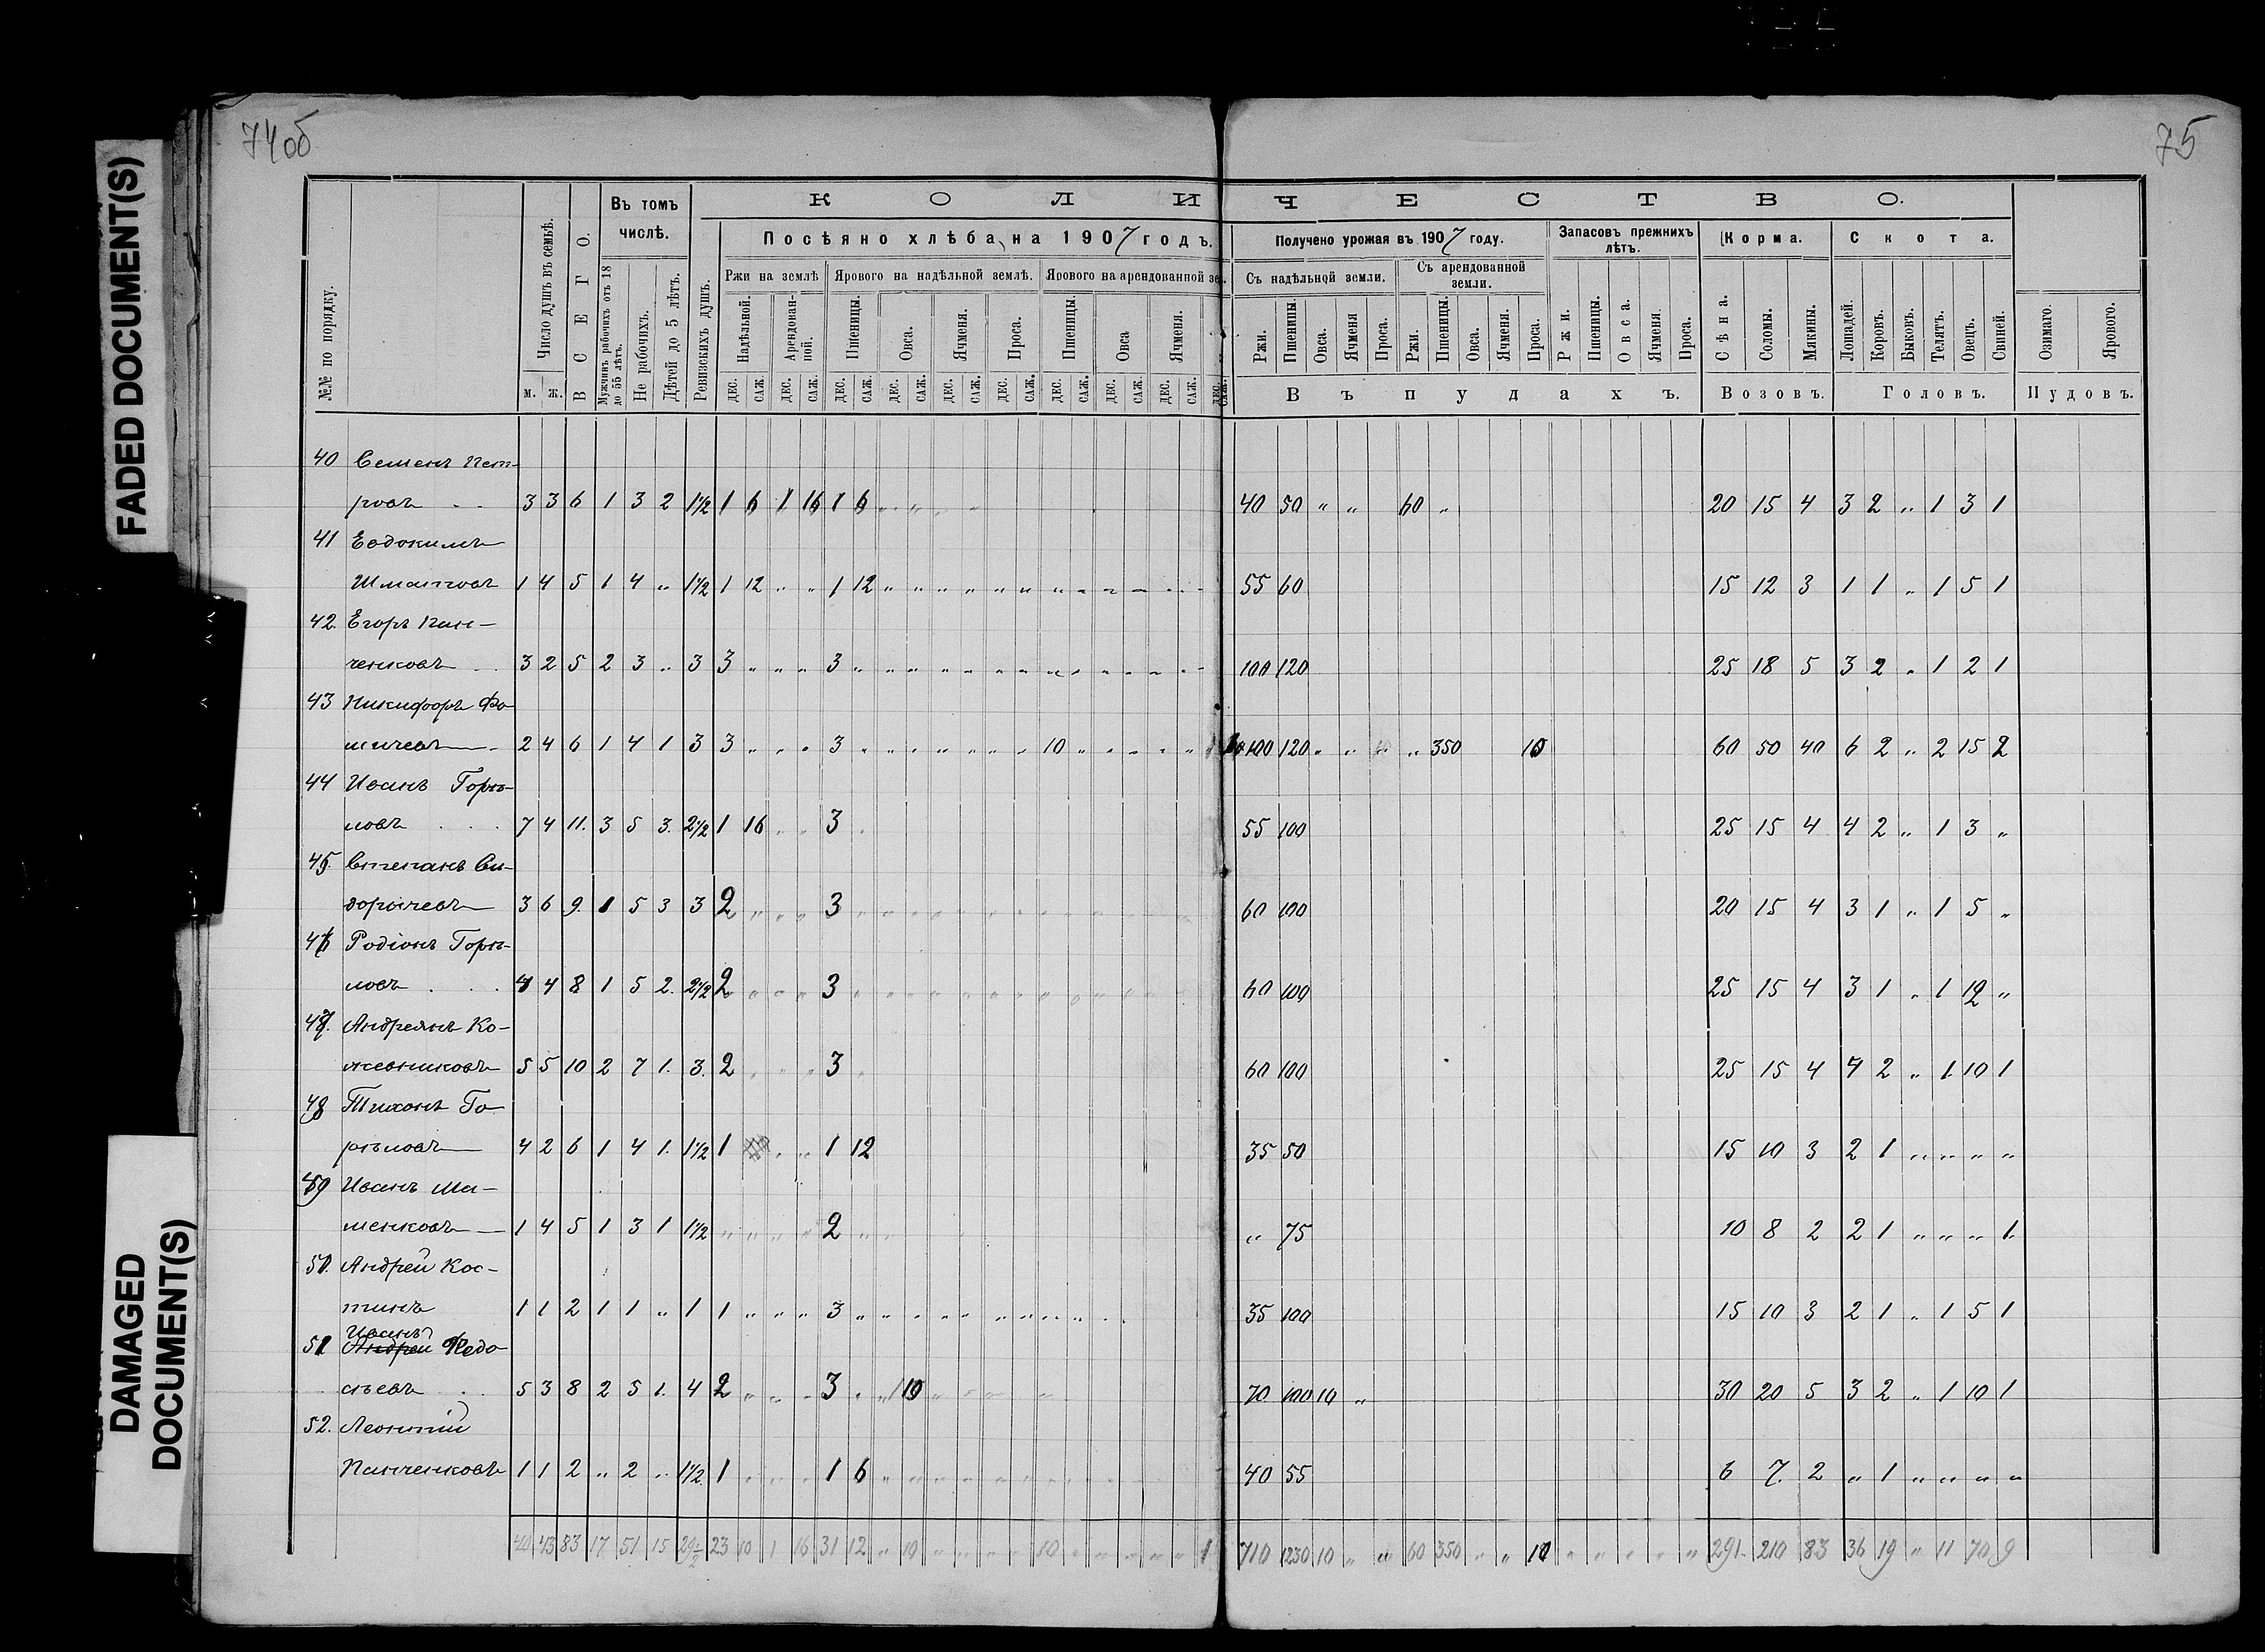 74 об
75
FADED DOCUMENT(S)
DAMAGED DOCUMENT(S)
К О Л И Ч Е С Т В О.
№№ по порядку.
Число душъ въ семьѣ.
м. ж.
В С Е Г О.
Въ томъ числѣ.
Мужчинъ рабочихъ отъ 18 до 55 лѣтъ.
Не рабочихъ.
Дѣтей до 5 лѣтъ.
Ревизскихъ душъ.
Посѣяно хлѣба на 1907 годъ.
Ржи на землѣ
Надѣльной.
Арендованной.
Ярового на надѣльной землѣ.
Пшеницы. Овса. Ячменя. Проса.
Ярового на арендованной зе
Пшеницы. Овса Ячменя.
дес. саж. дес. саж. дес. саж. дес. саж. дес. саж. дес. саж. дес. саж. дес. саж. дес. саж. дес. саж.
Получено урожая въ 1907 году.
Съ надѣльной земли.
Ржи. Пшеницы. Овса. Ячменя Проса.
Съ арендованной земли.
Ржи. Пшеницы. Овса. Ячменя. Проса.
Запасовъ прежнихъ лѣтъ.
Ржи. Пшеницы. Овса. Ячменя. Проса.
В ъ п у д а х ъ.
Корма.
Сѣна. Соломы. Мякины.
Возовъ.
Скота.
Лошадей. Коровъ. Быковъ. Телятъ. Овецъ. Свиней.
Головъ.
Озимаго. Ярового.
Пудовъ.
40 Семенъ Пет-
ровъ 3 3 6 1 3 2 1½ 1 6 1 16 1 6 40 50 „ „ 60 „ 20 15 4 3 2 „ 1 3 1
41 Евдокимъ
Шмацковъ 1 4 5 1 4 „ 1½ 1 12 „ „ 1 12 55 60 15 12 3 1 1 „ 1 5 1
42. Егоръ Пан-
ченковъ 3 2 5 2 3 „ 3 3 „ „ „ 3 100 120 25 18 5 3 2 „ 1 2 1
43 Никифоръ Фо-
мичевъ 2 4 6 1 4 1 3 3 „ „ „ 3 10 100 120 „ „ „ 350 10 60 50 40 6 2 „ 2 15 2
44 Иванъ Горѣ-
ловъ 7 4 11. 3 5 3. 2½ 1 16 „ „ 3 55 100 25 15 4 4 2 „ 1 3 „
45. Степанъ Си-
дорычевъ 3 6 9. 1 5 3 3 2 „ „ „ 3 60 100 20 15 4 3 1 „ 1 5 „
46 Родіонъ Горѣ-
ловъ 4 4 8 1 5 2. 2½ 2 „ „ „ 3 60 100 25 15 4 3 1 „ 1 12 „
47. Андреянъ Ко-
жевниковъ 5 5 10 2 7 1. 3. 2 „ „ „ 3 60 100 25 15 4 4 2 „ 1 10 1
48 Тихонъ Го-
рѣловъ 4 2 6 1 4 1. 1½ 1 „ „ 1 12 35 50 15 10 3 2 1 „ „ „ „
49 Иванъ Ма-
менковъ 1 4 5 1 3 1 1½ „ „ „ „ 2 „ 75 10 8 2 2 1 „ „ „ 1.
50. Андрей Кос-
тинъ 1 1 2 1 1 „ 1 1 „ „ „ 3 35 100 15 10 3 2 1 „ 1 5 1
Иванъ
51 Андрей Федо-
сѣевъ 5 3 8 2 5 1. 4 2 „ „ „ 3 „ „ 10 70 100 10 „ 30 20 5 3 2 „ 1 10 1
52. Леонтій
Панченковъ 1 1 2 „ 2 „ 1½ 1 „ „ „ 1 6 40 55 6 7. 2 „ 1 „ „ „ „
40 43 83 17 51 15 29½ 23 10 1 16 31 12 „ 10 10 1 710 1230 10 „ „ 60 350 „ „ 10 „ „ „ „ „ 291. 210 83 36 19 „ 11 70 9